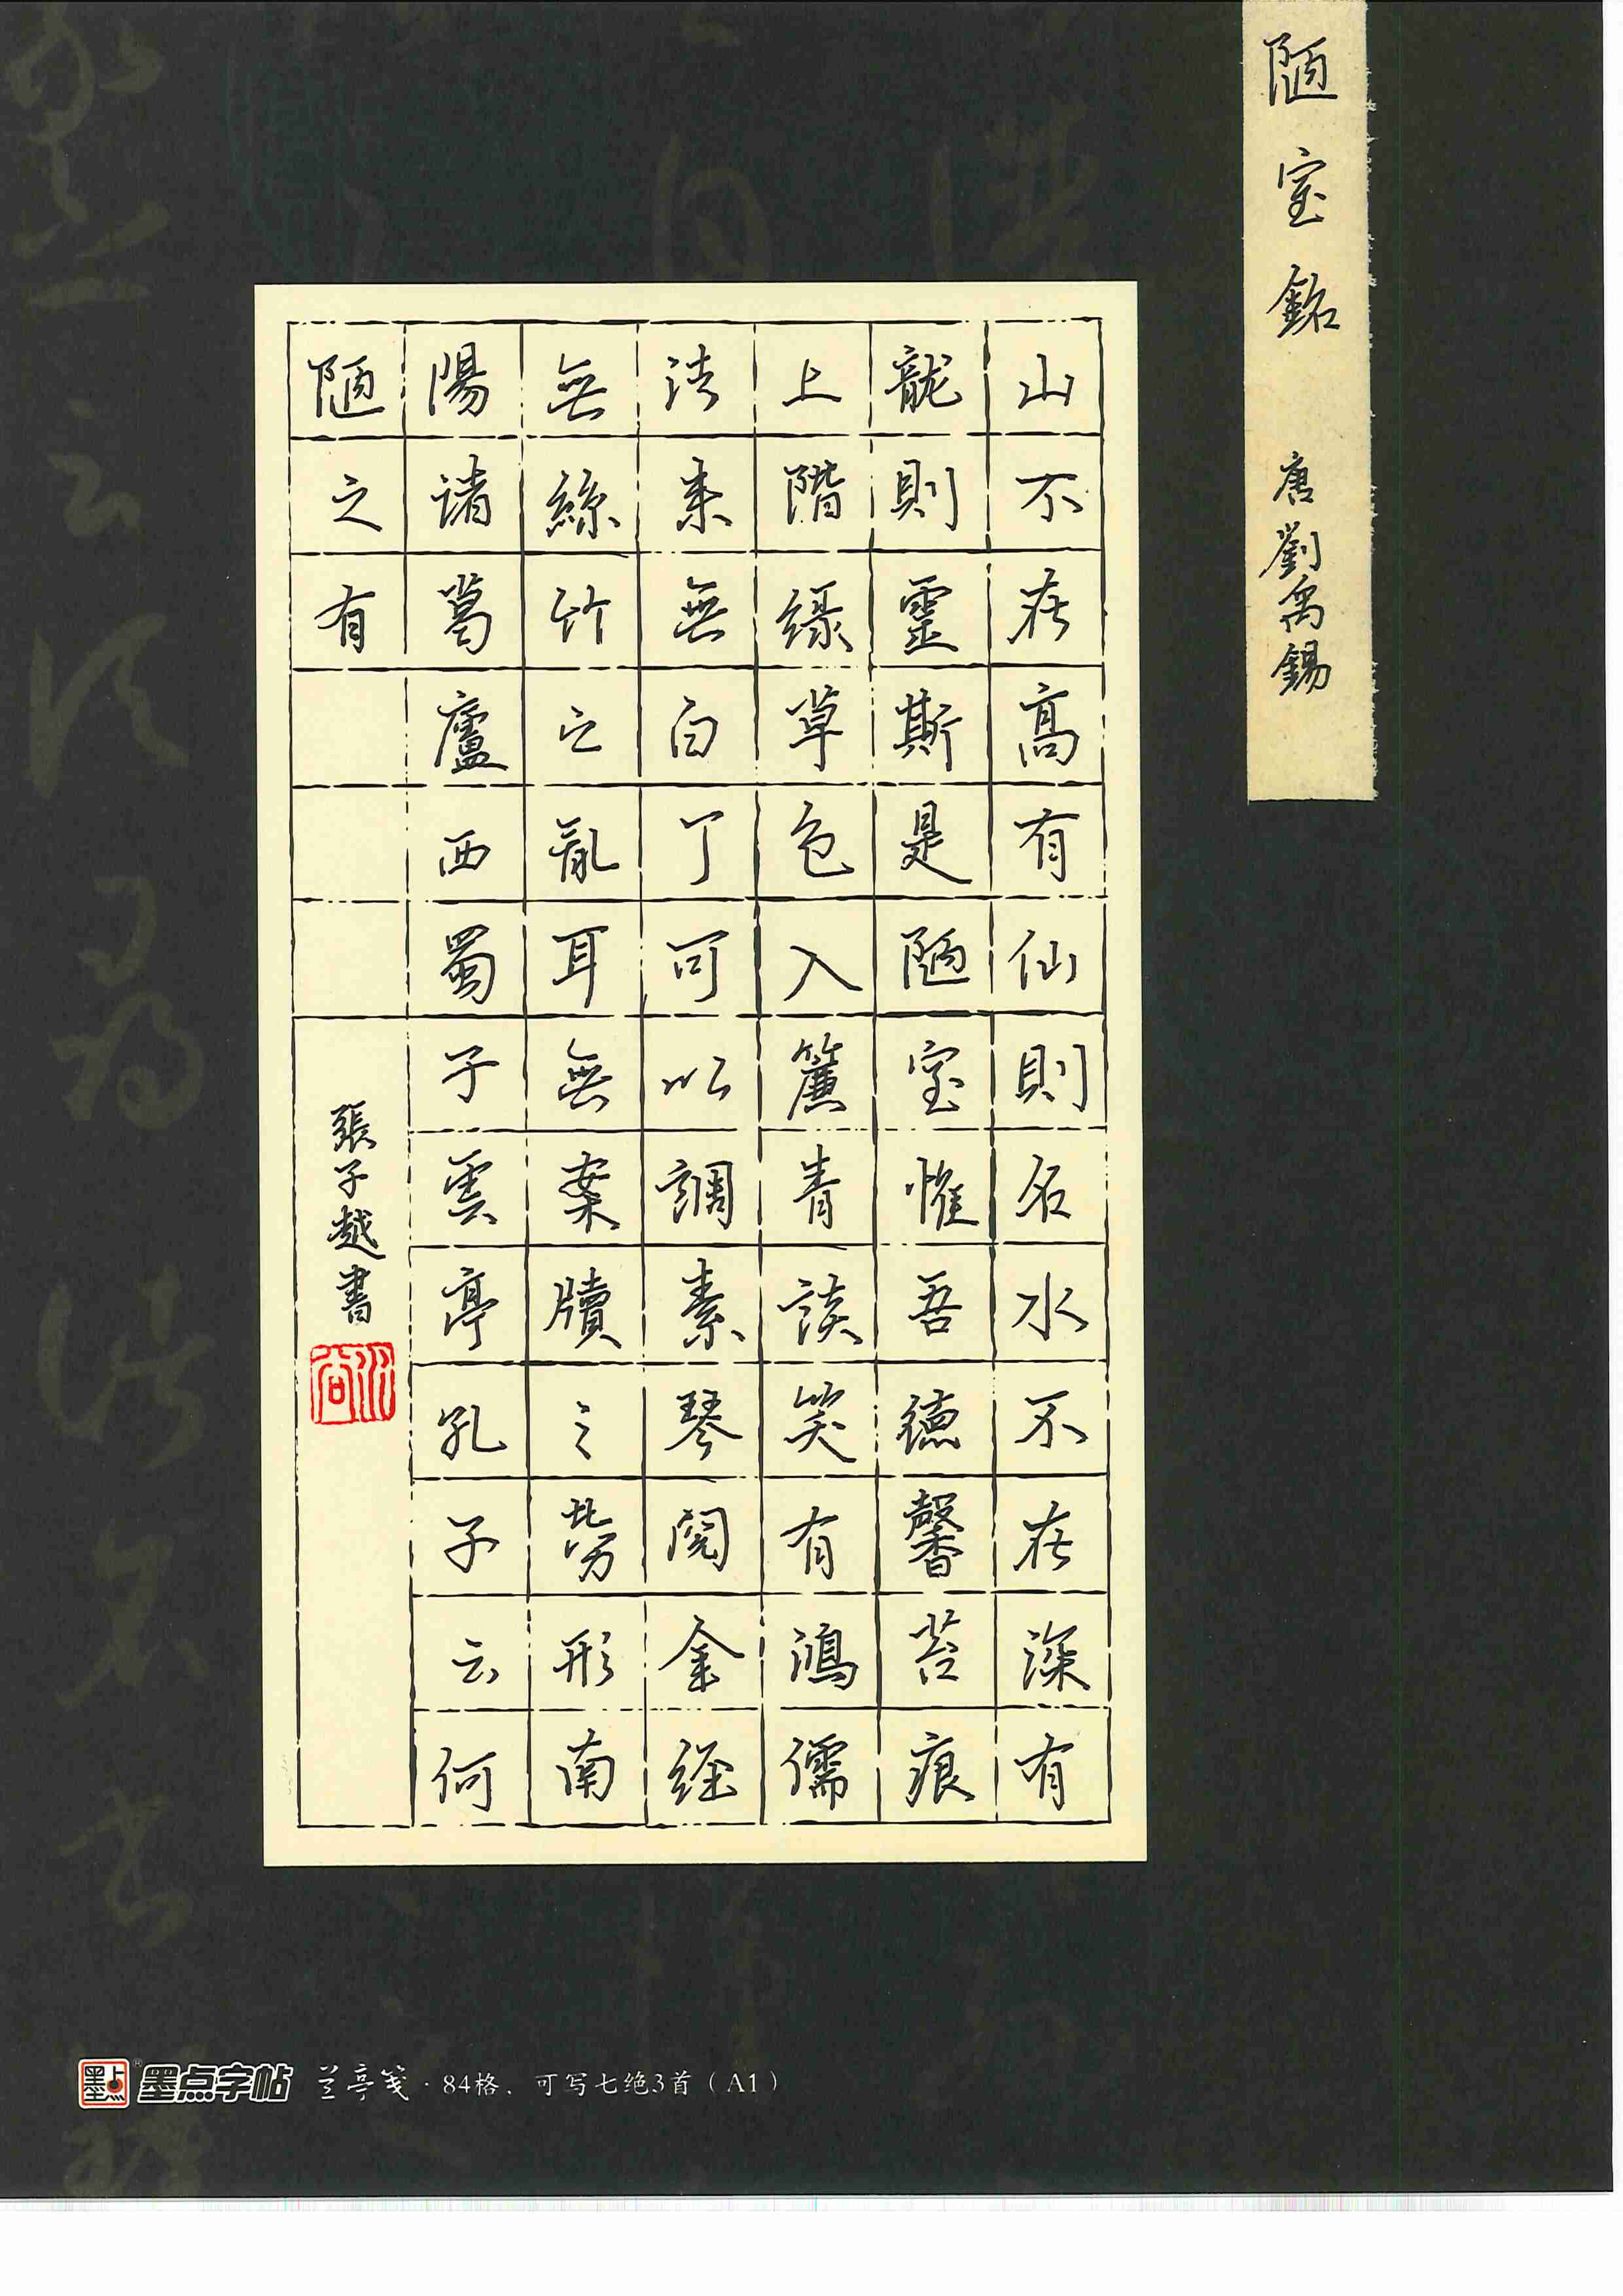 陋室銘 唐劉禹錫
山不在高有仙則名水不在深有
龍則靈斯是陋室惟吾德馨苔痕
上階緑草色入簾青談笑有鴻儒
往来無白丁可以調素琴閱金經
無絲竹之亂耳無案牘之勞形南
陽諸葛廬西蜀子雲亭孔子云何
陋之有
張子越書
墨点® 墨点字帖 兰亭笺·84格，可写七绝3首（A1）